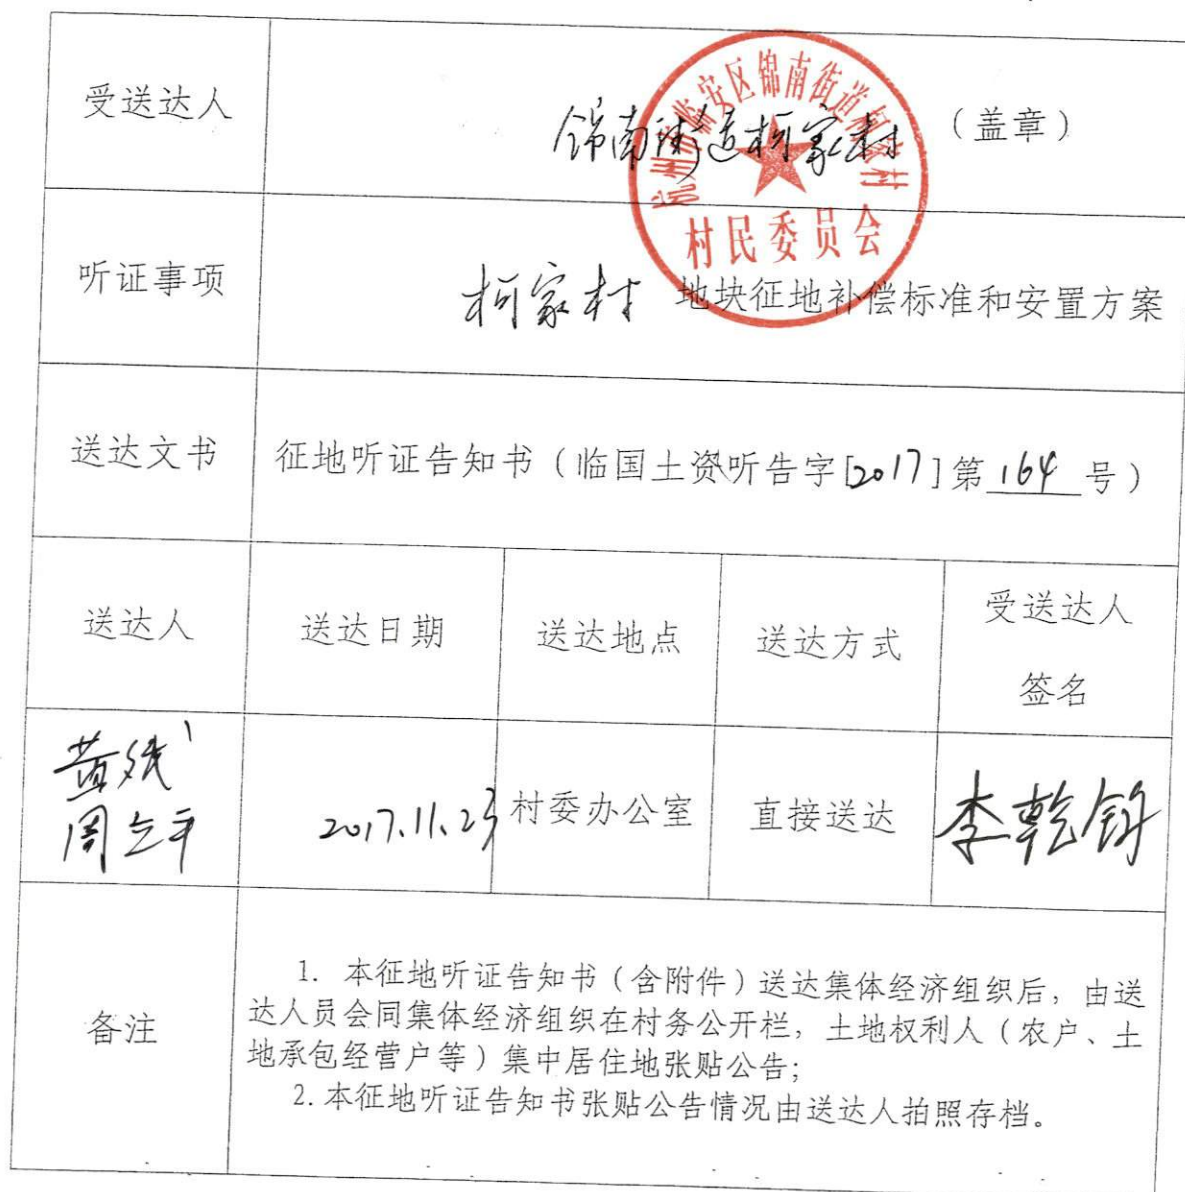 受送达人
锦南街道柯家村 （盖章）
杭州市临安区锦南街道柯家村
村民委员会
听证事项
柯家村 地块征地补偿标准和安置方案
送达文书
征地听证告知书（临国土资听告字[2017]第 164 号）
送达人 送达日期 送达地点 送达方式 受送达人
签名
周立平 2017.11.23 村委办公室 直接送达 李乾
备注
1. 本征地听证告知书（含附件）送达集体经济组织后，由送
达人员会同集体经济组织在村务公开栏，土地权利人（农户、土
地承包经营户等）集中居住地张贴公告；
2.本征地听证告知书张贴公告情况由送达人拍照存档。